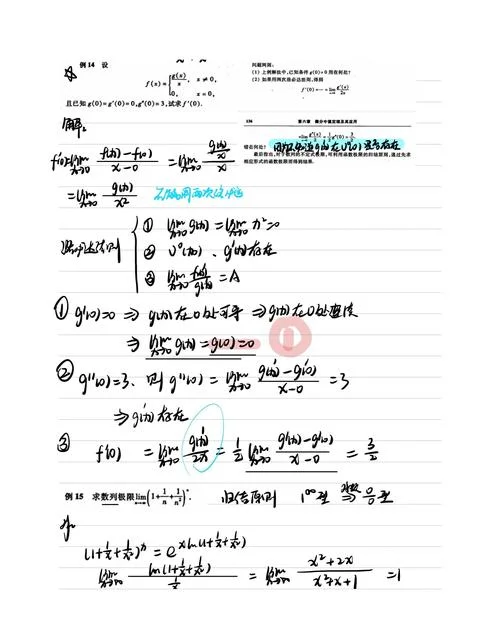 例 14 设
f(x)={ g(x)/x, x≠0,
0, x=0,
且已知 g(0)=g'(0)=0,g''(0)=3,试求 f'(0).
问题回顾:
(1) 上例解法中,已知条件 g'(0)=0 用在何处?
(2) 如果用两次洛必达法则,得到
f'(0)=⋯=lim_{x→0} g'(x)/2x
136 第六章 微分中值定理及其应用
=lim_{x→0} g''(x)/2=1/2 g''(0)=3/2.
错在何处?
最后指出,对于数列的不定式极限,可利用函数极限的归结原则,通过先求
相应形式的函数极限而得到结果.
解:
f'(0)=lim_{x→0} (f(x)-f(0))/(x-0) =lim_{x→0} (g(x)/x)/x
=lim_{x→0} g(x)/x² 不能用两次洛必达
洛必达法则
① lim_{x→0} g(x)=lim_{x→0} x²=0
② U°(x₀)、g'(x)存在
③ lim_{x→0} f'(x)/g'(x) = A
① g'(0)=0 ⇒ g(x)在0处可导 ⇒ g(x)在0处连续
⇒ lim_{x→0} g(x)=g(0)=0
② g''(0)=3, 则 g''(0)=lim_{x→0} (g'(x)-g'(0))/(x-0) =3
⇒ g'(x)存在
③ f'(0) =lim_{x→0} g'(x)/2x =1/2 lim_{x→0} (g'(x)-g'(0))/(x-0) = 3/2
例 15 求数列极限 lim_{n→∞}(1+1/n+1/n²)ⁿ. 归结原则 1^∞型 ⇒ 对数 0/0型
解
(1+1/x+1/x²)ˣ = e^{x ln(1+1/x+1/x²)}
lim_{x→∞} ln(1+1/x+1/x²)/(1/x) = lim_{x→∞} (x²+2x)/(x²+x+1) =1